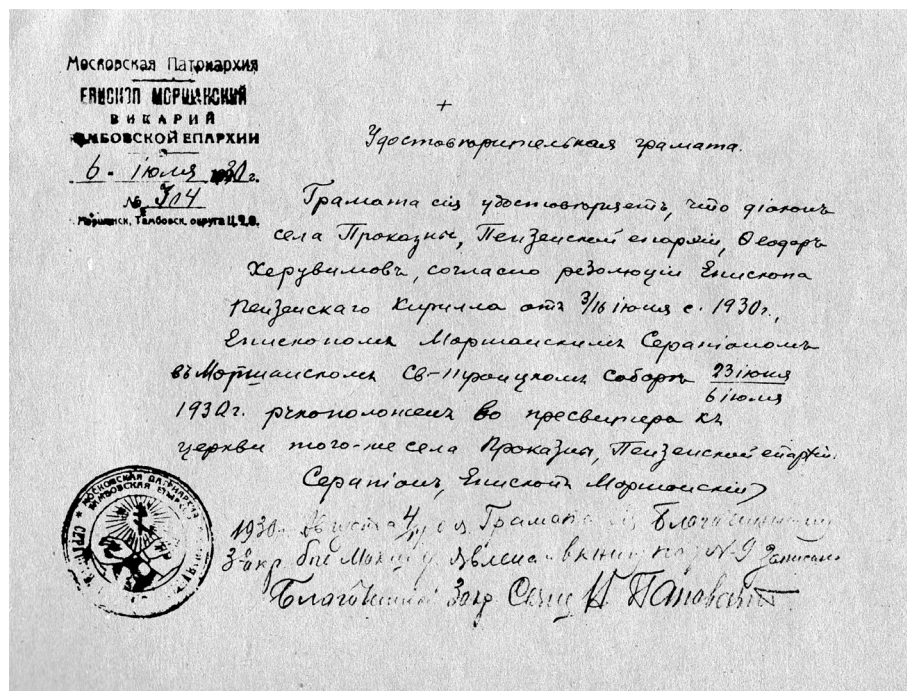 Московская Патриархия
ЕПИСКОП МОРШАНСКИЙ
ВИКАРИЙ
ТАМБОВСКОЙ ЕПАРХИИ
6 - іюля 1930 г.
№ 304
Моршанск, Тамбовск. округа Ц.Ч.О.
+
Удостовѣрительная грамата.
Грамата сія удостовѣряетъ, что діаконъ
села Проказны, Пензенской епархіи, Ѳеодоръ
Херувимовъ, согласно резолюціи Епископа
Пензенскаго Кирилла отъ 3/16 іюня с. 1930 г.,
Епископомъ Моршанскимъ Серапіономъ
въ Моршанскомъ Св-Троицкомъ Соборѣ 23 іюня
6 іюля
1930 г. рукоположенъ во пресвитера къ
церкви того-же села Проказны, Пензенской епархіи.
Серапіонъ, Епископъ Моршанскій
1930 Августа 4/ Грамата сія Благочинному
3 окр явлена в книгу под № 9 записана
Благочинный 3 окр Свящ
МОСКОВСКАЯ ПАТРИАРХИЯ
ТАМБОВСКАЯ ЕПАРХИЯ